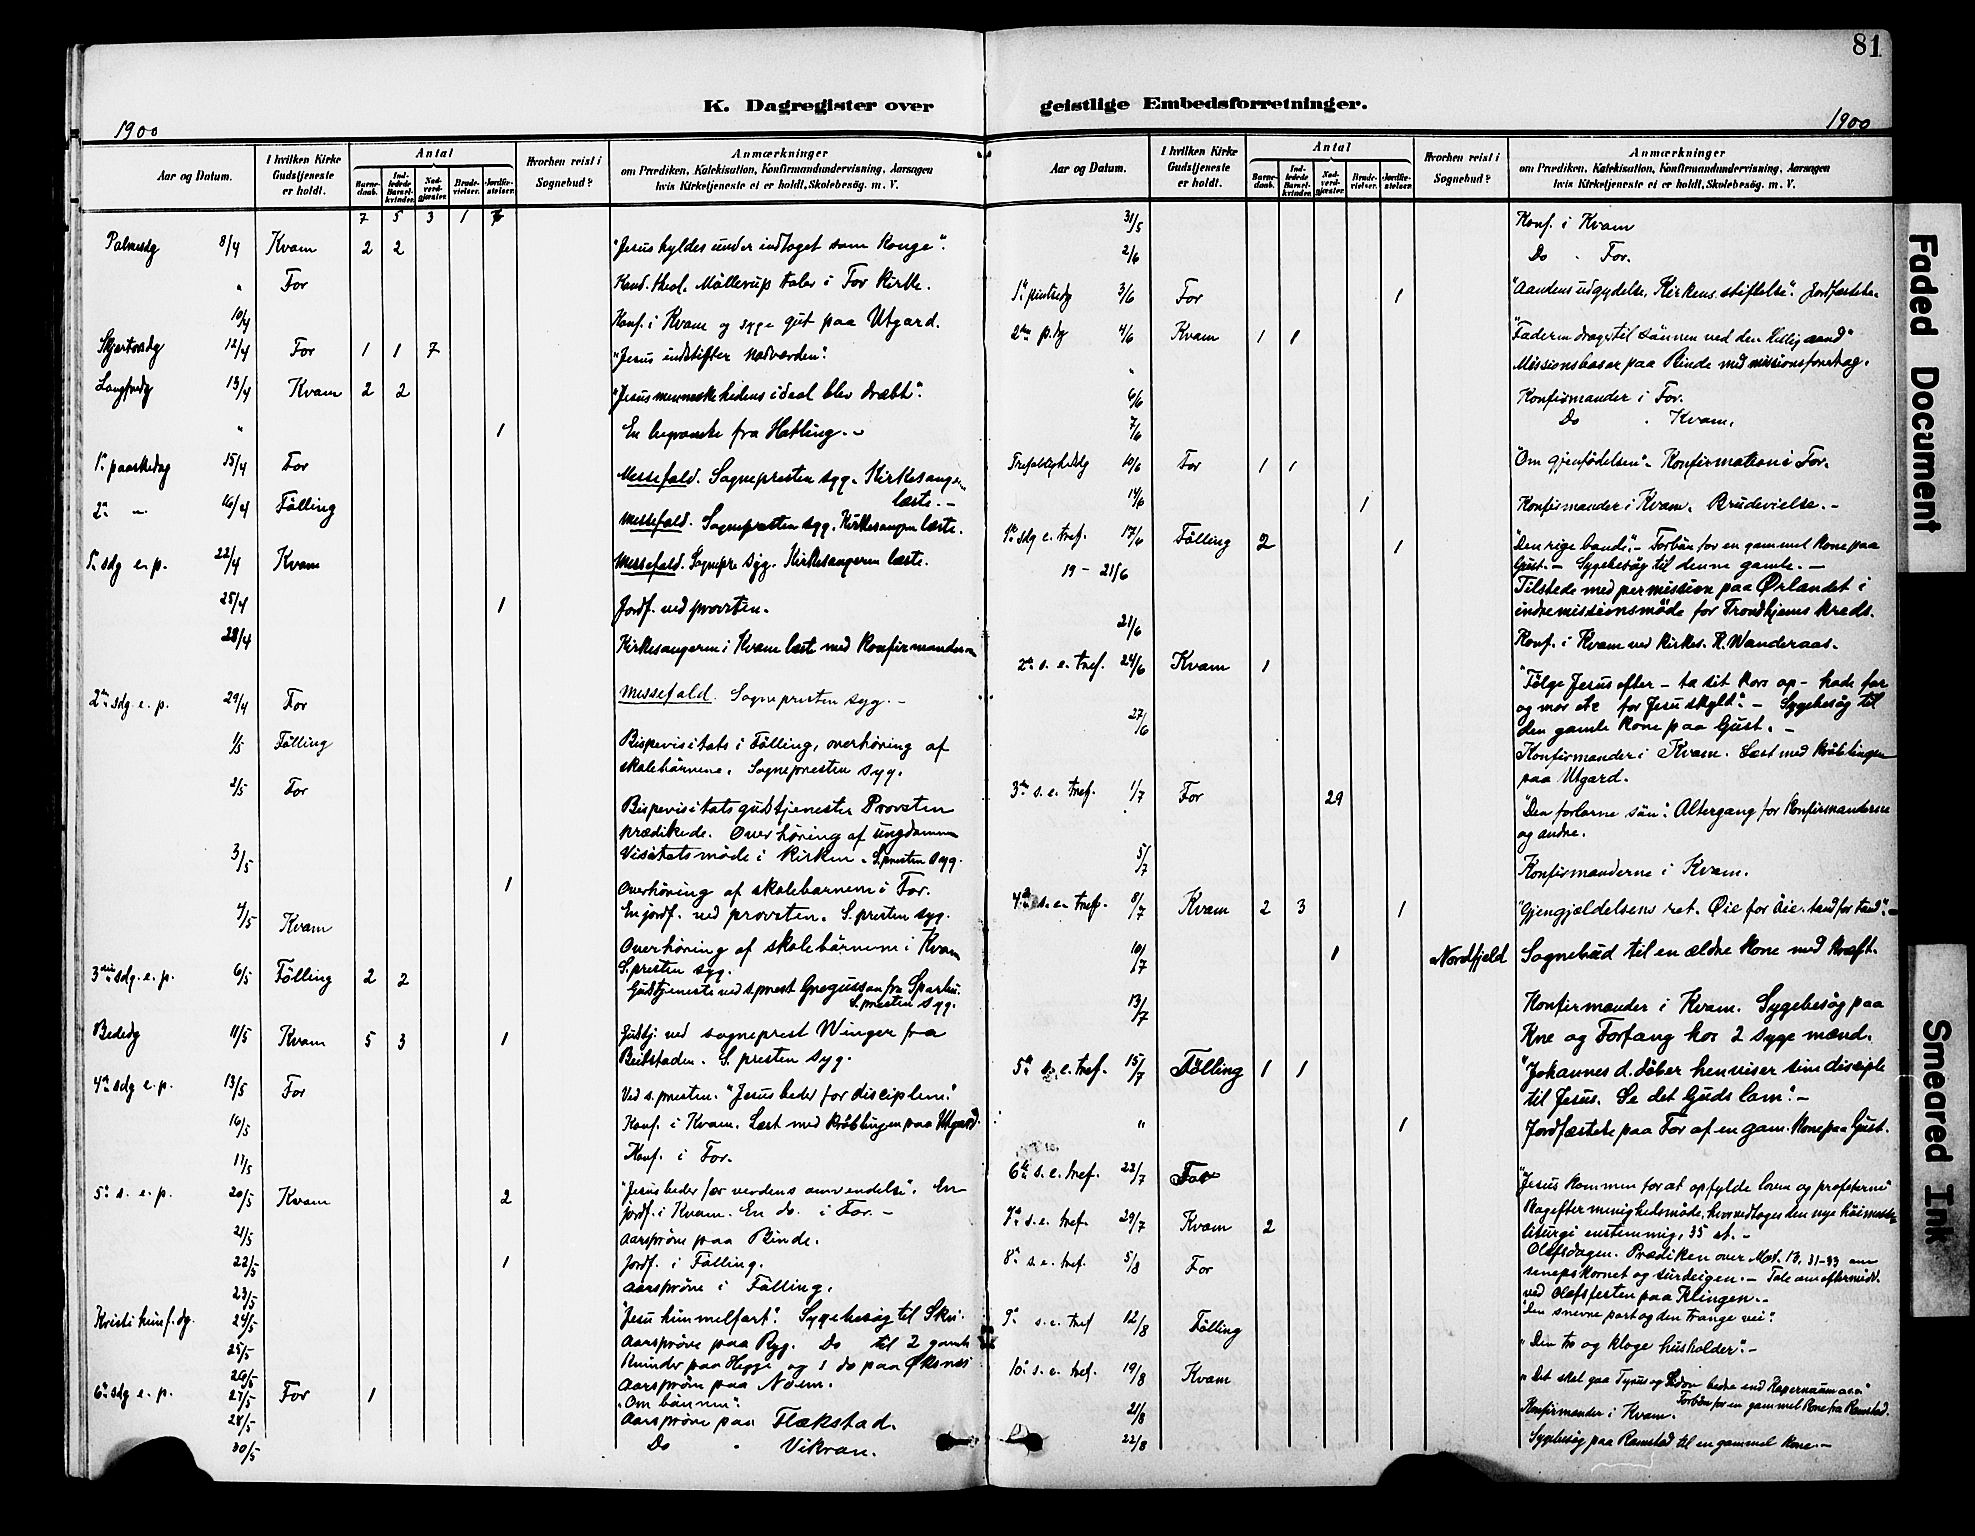 81
K. Dagregister over geistlige Embedsforretninger.
1900
1900
Aar og Datum.
I hvilken Kirke Gudstjeneste er holdt.
Antal
Barnedaab.
Indledede Barselkvinder.
Nadverdgjæster.
Brudevielser.
Jordfæstelser.
Hvorhen reist i Sognebud?
Anmærkninger
om Prædiken, Katekisation, Konfirmandundervisning, Aarsagen
hvis Kirketjeneste ei er holdt, Skolebesøg. m. V.
7 5 3 1
Palmesdg 8/4 Kvam 2 2 "Jesus hyldes under indtoget som konge".
" For Kand. theol. Möllerup taler i For kirke.
10/4 Konf. i Kvam og syge gut paa Utgard.
Skjertorsdg 12/4 For 1 1 7 "Jesus indstifter nadverden".
Langfredg 13/4 Kvam 2 2 "Jesus menneskehedens ideal blev dræbt".
" 1 En begravelse fra Hatling. -
1ste paaskedag 15/4 For Messefald. Sognepresten syg. Kirkesangeren
læste. -
2. - 16/4 Følling Messefald. Sognepresten syg. Kirkesangeren læste.
1. sdg e. p. 22/4 Kvam Messefald. Sognepr. syg. Kirkesangeren læste.
25/4 1 Jordf. ved provsten.
28/4 Kirkesangeren i Kvam læst med konfirmanderne
2den sdg. e. p. 29/4 For Messefald. Sognepresten syg. -
1/5 Følling Bispevisitats i Følling, overhøring af
skolebørnene. Sognepresten syg.
2/5 For Bispevisitatsgudstjeneste Provsten
prædikede. Overhøring af ungdommen
Visitatsmøde i kirken. S.presten syg.
3/5 1 Overhøring af skolebørnene i For.
En jordf. ved provsten. S.presten syg.
4/5 Kvam Overhøring af skolebørnene i Kvam
S.presten syg.
3die sdg. e. p. 6/5 Følling 2 2 Gudstjeneste ved s.prest Gregussen fra Sparbu.
S.presten syg.
Bededg 11/5 Kvam 5 3 1 Gudstj. ved sogneprest Winger fra
Beitstaden. S.presten syg.
4de sdg e. p. 13/5 For Ved s.presten. "Jesus beder for disciplene."
16/5 Konf. i Kvam. Læst med krøblingen paa Utgard.
17/5 Konf. i For.
5te s. e. p. 20/5 Kvam 2 "Jesus beder for verdens omvendelse". En
jordf. i Kvam. En do. i For. -
21/5 Aarsprøve paa Binde.
22/5 1 Jordf. i Følling.
23/5 Aarsprøve i Følling.
Kristi himf. dg. 24/5 "Jesu himmelfart". Sygebesøg til Skei
25/5 Aarsprøve paa Ryg. Do til 2 gamle
kvinder paa Hegge og 1 do paa Øksnes
26/5 Aarsprøve paa Noem.
6te sdg e. p. 27/5 For 1 "Om bønnen".
28/5 Aarsprøve paa Flækstad.
30/5 Do " Vikran.
Aar og Datum.
I hvilken Kirke Gudstjeneste er holdt.
Antal
Barnedaab.
Indledede Barselkvinder.
Nadverdgjæster.
Brudevielser.
Jordfæstelser.
Hvorhen reist i Sognebud?
Anmærkninger
om Prædiken, Katekisation, Konfirmandundervisning, Aarsagen
hvis Kirketjeneste ei er holdt, Skolebesøg. m. V.
31/5 Konf. i Kvam
2/6 Do . For.
1ste pintsedg 3/6 For 1 "Aandens udgydelse, Kirkens stiftelse". Jordfæstelse.
2den p.dg 4/6 Kvam 1 1 "Faderen drager til sønnen ved den Hellig aand"
" Missionsbasar paa Binde med missionsforedrag.
6/6 Konfirmander i For.
7/6 Do . Kvam.
Trefoldighedsdg 10/6 For 1 1 "Om gjenfødelsen". Konfirmation i For.
14/6 1 Konfirmander i Kvam. Brudevielse. -
1ste sdg e. tref. 17/6 Følling 2 1 "Den rige bonde". - Forbøn for en gammel kone paa
Gust. - Sygebesøg til denne gamle. -
19 - 21/6 Tilstede med permission paa Ørlandet i
indremissionsmøde for Trondhjems kreds.
21/6 Konf. i Kvam ved kirkes. H. Wanderaas.
2den s. e. tref. 24/6 Kvam 1 "Følge Jesus efter - ta sit kors op - hade far
og mor etc for Jesu skyld". - Sygebesøg til
den gamle kone paa Gust. -
27/6 Konfirmander i Kvam. Læst med krøblingen
paa Utgard.
3die s. e. tref. 1/7 For 29 "Den forlorne søn". Altergang for konfirmanderne
og andre.
5/7 Konfirmanderne i Kvam.
4de s. e. tref. 8/7 Kvam 2 3 1 "Gjengjældelsens ret. Øie for øie. tand for tand". -
10/7 1 Nordfjeld Sognebud til en ældre kone med kræft.
13/7 Konfirmander i Kvam. Sygebesøg paa
Kne og Forfang hos 2 syge mænd.
5te s. e. tref. 15/7 Følling 1 1 "Johannes d. døber henviser sine disciple
til Jesus. Se det Guds lam". -
" 1 Jordfæstelse paa For af en gam. kone paa Gust.
6te s. e. tref. 22/7 For "Jesus kommen for at opfylde loven og profeterne"
Bagefter menighedsmøde, hvor vedtoges den nye høimesse-
liturgi enstemmig, 35 st. -
7de s. e. tref. 29/7 Kvam 2 Olafsdagen. Prædiken over Mat. 13. 31-33 om
senepskornet og surdeigen. - Tale om eftermidd.
ved Olafsfesten paa Klingen. -
8de s. e. tref. 5/8 For "Den snevre port og den trange vei".
9de s. e. tref 12/8 Følling "Den tro og kloge husholder". -
10de s. e. tref. 19/8 Kvam "Det skal gaa Tyrus og Sidon bedre end Kapernaum osv."
Forbøn for en gammel kone fra Ramstad.
21/8 Konfirmander i Kvam.
22/8 Sygebesøg paa Ramstad til en gammel kone. -
Faded Document
Smeared Ink